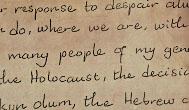 response to despair
do, where we are, with
many people of my gene
the Holocaust, the decisio
olum, the Hebrew